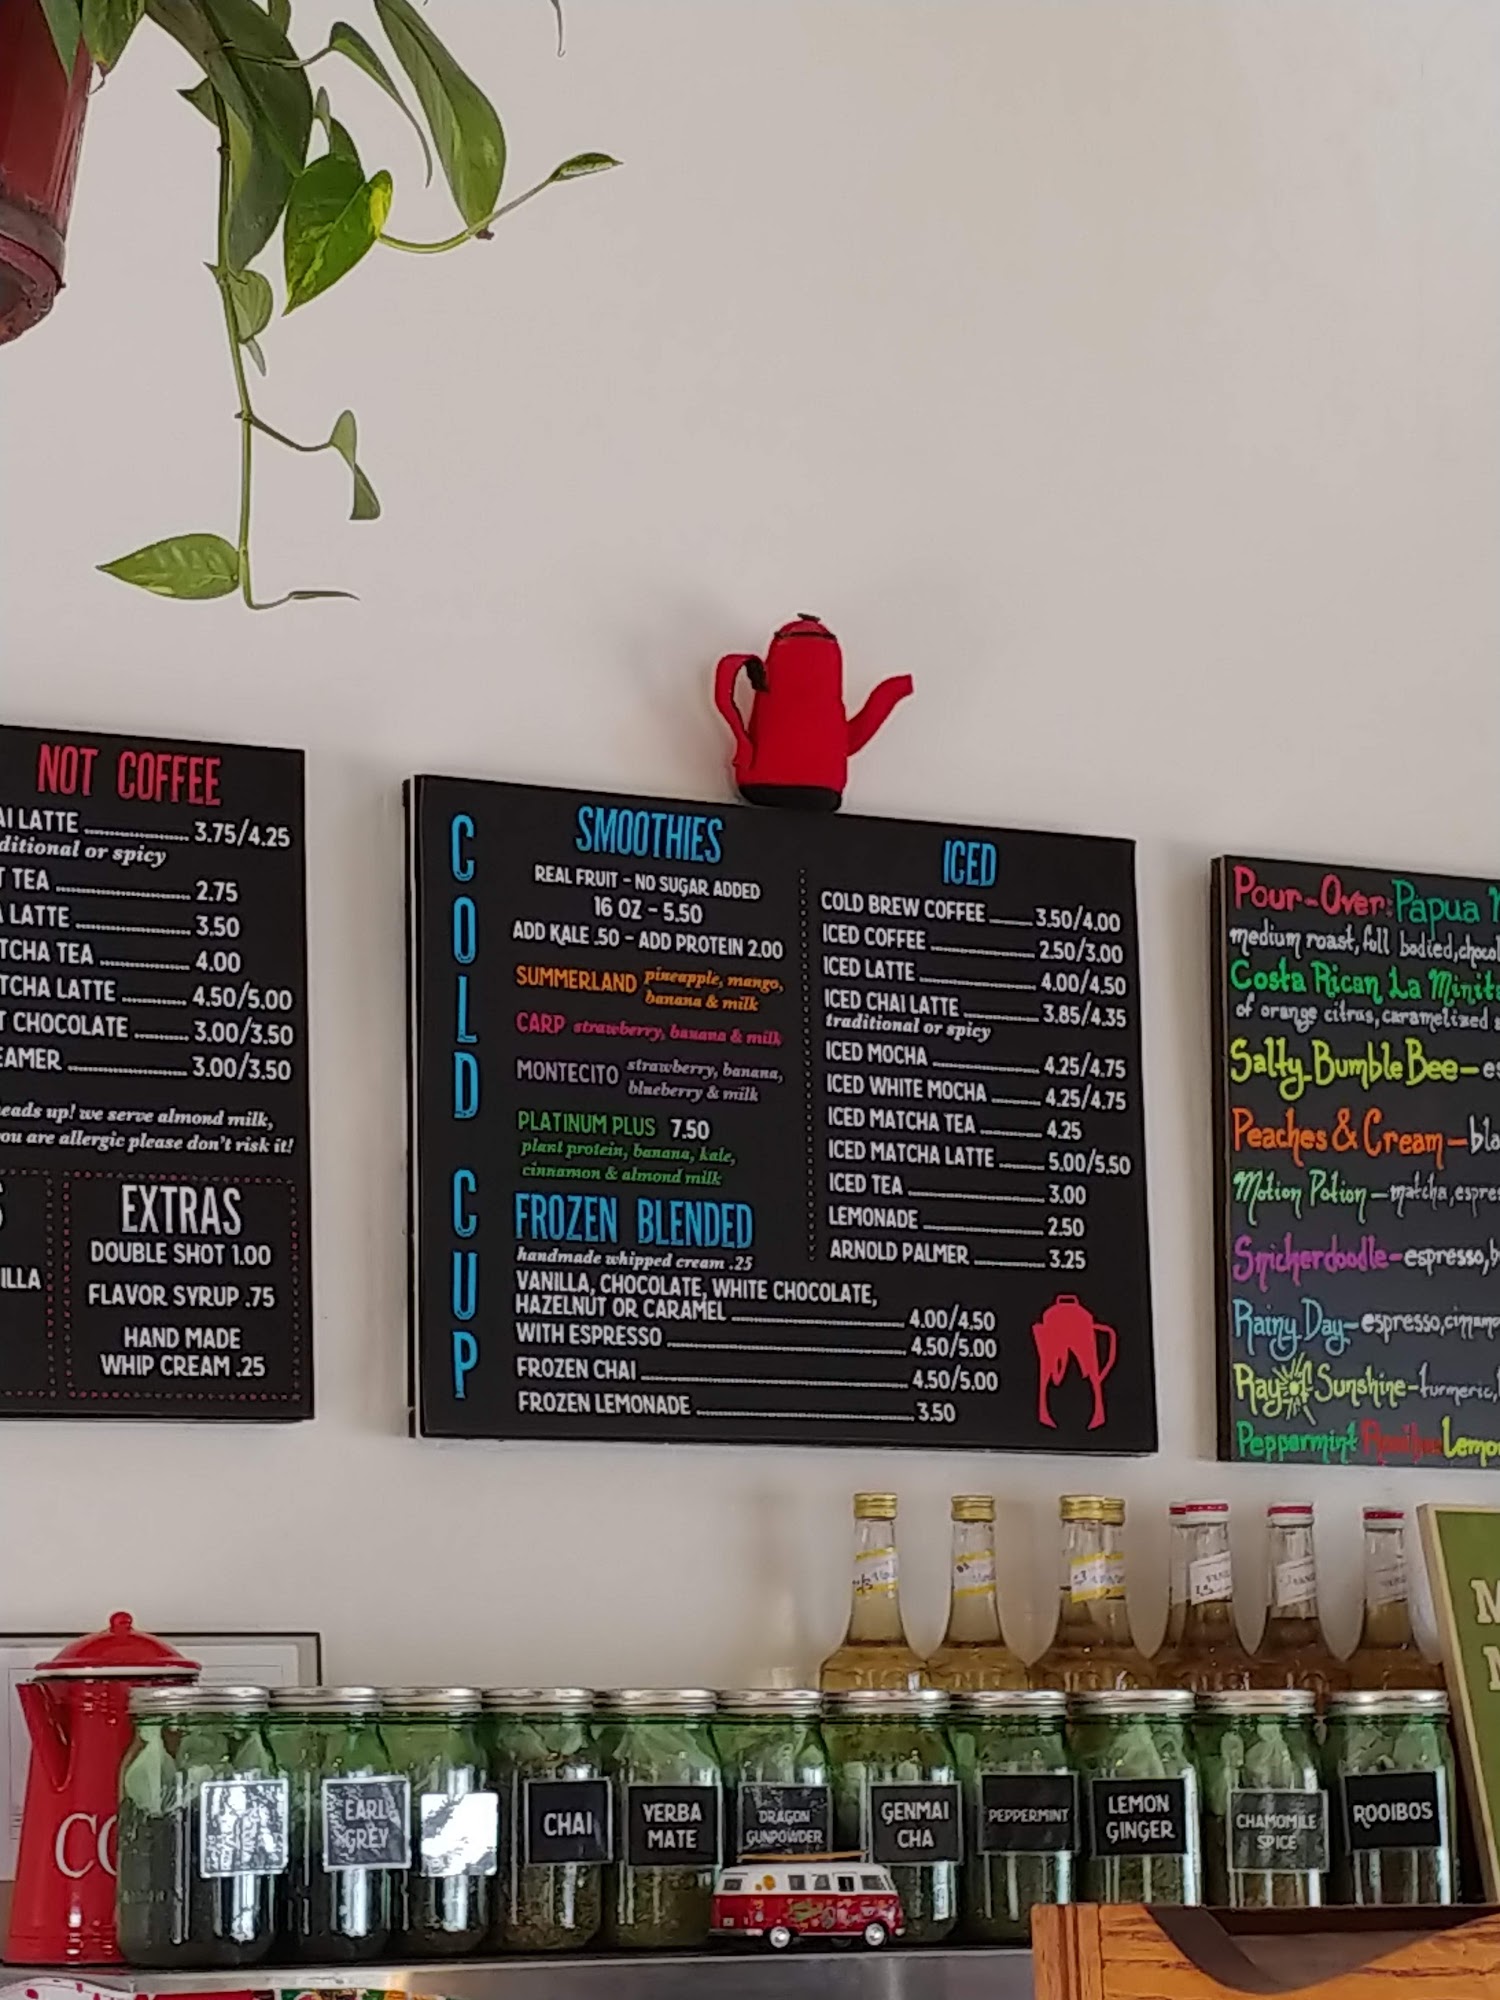 NOT COFFEE
AI LATTE 3.75/4.25
ditional or spicy
T TEA 2.75
A LATTE 3.50
TCHA TEA 4.00
TCHA LATTE 4.50/5.00
T CHOCOLATE 3.00/3.50
EAMER 3.00/3.50
eads up! we serve almond milk,
ou are allergic please don't risk it!
S
ILLA
EXTRAS
DOUBLE SHOT 1.00
FLAVOR SYRUP .75
HAND MADE
WHIP CREAM .25
COLD CUP
SMOOTHIES
REAL FRUIT - NO SUGAR ADDED
16 OZ - 5.50
ADD KALE .50 - ADD PROTEIN 2.00
SUMMERLAND pineapple, mango,
banana & milk
CARP strawberry, banana & milk
MONTECITO strawberry, banana,
blueberry & milk
PLATINUM PLUS 7.50
plant protein, banana, kale,
cinnamon & almond milk
FROZEN BLENDED
handmade whipped cream .25
VANILLA, CHOCOLATE, WHITE CHOCOLATE,
HAZELNUT OR CARAMEL 4.00/4.50
WITH ESPRESSO 4.50/5.00
FROZEN CHAI 4.50/5.00
FROZEN LEMONADE 3.50
ICED
COLD BREW COFFEE 3.50/4.00
ICED COFFEE 2.50/3.00
ICED LATTE 4.00/4.50
ICED CHAI LATTE 3.85/4.35
traditional or spicy
ICED MOCHA 4.25/4.75
ICED WHITE MOCHA 4.25/4.75
ICED MATCHA TEA 4.25
ICED MATCHA LATTE 5.00/5.50
ICED TEA 3.00
LEMONADE 2.50
ARNOLD PALMER 3.25
Pour-Over: Papua
medium roast, full bodied, chocol
Costa Rican La Minita
of orange citrus, caramelized
Salty Bumble Bee - es
Peaches & Cream - bla
Motion Potion - matcha, espres
Snickerdoodle - espresso, b
Rainy Day - espresso, cinnamo
Ray of Sunshine - turmeric,
Peppermint Rooibos Lemo
CO
EARL
GREY
CHAI
YERBA
MATE
DRAGON
GUNPOWDER
GENMAI
CHA
PEPPERMINT
LEMON
GINGER
CHAMOMILE
SPICE
ROOIBOS